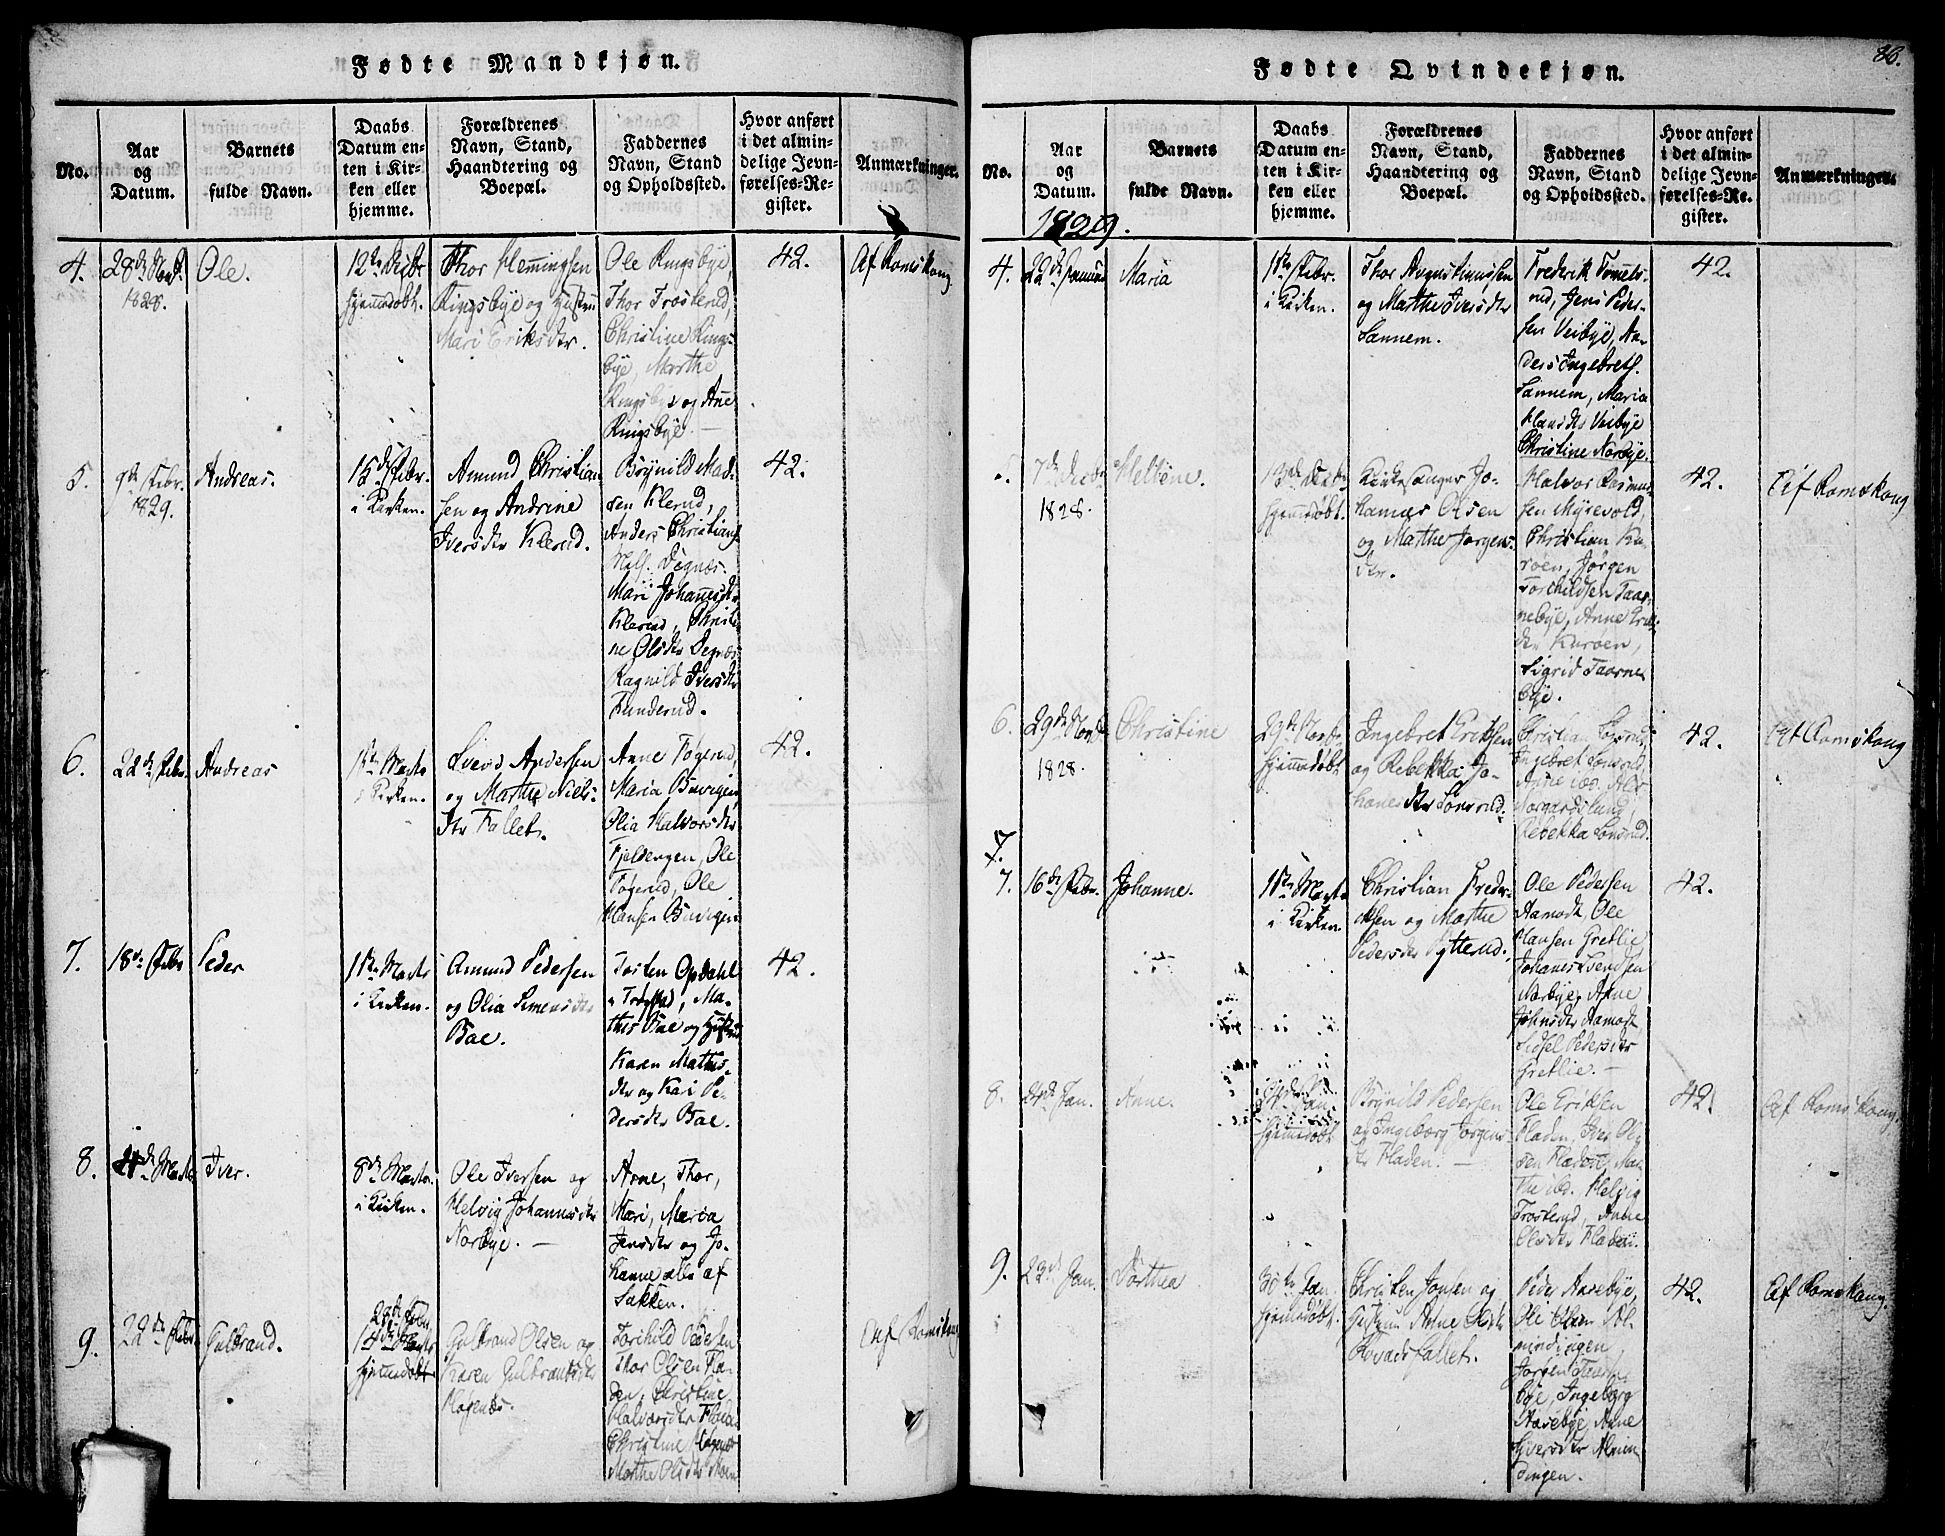 Fødte Mandkjøn.
No.
Aar
og
Datum.
Barnets
fulde Navn.
Daabs
Datum en-
ten i Kir-
ken eller
hjemme.
Forældrenes
Navn, Stand,
Haandtering og
Boepæl.
Faddernes
Navn, Stand
og Opholdssted.
Hvor anført
i det almin-
delige Jevn-
førelses-Re-
gister.
Anmærkninger.
4.
1828.
Ole.
12te Febr
hjemmedøbt.
Thor Flemmingsen
Ringsbye og Hustru
Mari Eriksdtr.
Ole Ringsbye,
Thor Trosterud,
Christine Rings-
bye, Marthe
Ringsbye og Ane
Ringsbye.
42.
Af Romskoug
5.
9de Febr.
1829.
Andreas.
15de Febr.
i Kirken.
Amund Christian-
sen og Andrine
Iversdtr Klerud.
Brynild Mad-
sen Klerud,
Anders Christians
Degnæs.
Mari Johannesdtr
Klerud, Christi-
ne Olsdtr Degnæs
Ragnild Iversdtr
Funderud.
42.
6.
22de Febr.
Andreas
1ste Marts
i Kirken.
Svend Andersen
og Marthe Niels-
dtr Fallet.
Anne Føgerud,
Maria Buvigen
Olia Halvorsdtr
Fjeldengen, Ole
Føgerud, Ole
Hansen Buvigen
42.
7.
18de Febr
Peder
1ste Marts
i Kirken.
Amund Pedersen
og Olia Simensdtr
Bae.
Torsten Opdahl
i Trøgstad, Ma-
this Bae og Hustru
Karen Mathis-
dtr og Kari Pe-
dersdtr Bae.
42.
8.
4de Marts
Iver.
8de Marts.
i Kirken.
Ole Iversen og
Helvig Johannesdtr
Norbye.
Arne, Thor,
Mari, Maria
Jensdtr og Jo-
hanne alle af
Lakken.
9.
22de Febr
Gulbrand.
22de Febr.
14de Marts
hjemmedøbt
Gulbrand Olsen og
Karen Gulbrandsdtr
Høgenæs.
Torchild Pedersen
Thor Olsen Fla-
den, Christine
Halvorsdtr Fladen
Christine Høgenæs
Marthe Olsdtr Moen
Af Romskoug
Fødte Qvindekjøn.
86.
No.
Aar
og
Datum.
1829.
Barnets
fulde Navn.
Daabs
Datum en-
ten i Kir-
ken eller
hjemme.
Forældrenes
Navn, Stand,
Haandtering og
Boepæl.
Faddernes
Navn, Stand
og Opholdssted.
Hvor anført
i det almin-
delige Jevn-
førelses-Re-
gister.
Anmærkninger.
4.
22de Januar
Maria
1ste Febr.
i Kirken.
Thor Augustinussen
og Marthe Iversdtr
Sannem.
Frederik Tomets-
rud, Jens Peder-
sen Veibye, An-
ders Ingebrets.
Sannem, Maria
Hansdtr Veibye
Christine Norbye.
42.
7de Decbr
1828.
13de Decbr
hjemmedøbt.
Kirkesanger Jo-
hannes Olsen
og Marthe Jørgens-
dtr.
Halvor Rasmus-
sen Myrevold,
Christian Ku-
roen, Jørgen
Torchildsen Taar-
nebye, Anne
dtr Kuroen,
Sigrid Taarne-
bye.
42.
Af Romskoug
6.
29de Novbr
1828.
Christine
29de Novbr
hjemmedøbt
Ingebret Eriksen
og Rebekka Jo-
hanesdtr Lonsrud.
Christian Lonsrud,
Ingebret Lonsrud,
Rebekka Lonsrud.
42.
Af Romskoug
7.
7.
16de Febr.
Johanne.
1ste Marts
i Kirken.
Christian Freder-
iksen og Marthe
Pedersdtr Rytterud.
Ole Pedersen
Aamodt, Ole
Hansen Gretlie
Johannes Svendsen
Norbye, Anne
Johnsdtr Aamodt
Sidsel Pedersdtr
Gretlie.
42.
8.
24de Jan.
Anne.
24de Jan
hjemmedøbt
Brynild Pedersen
og Ingeborg Jørgens-
dtr Fladen.
Ole Eriksen
Fladen, Iver Ol-
sen Fladen, Mar-
the ibd. Helvig
Trosterud, Anne
Olsdtr Fladen.
42.
Af Romskoug.
9.
23de Jan.
Dorthea
30te Jan
hjemmedøbt
Christen Jonsen og
Hustru Anne
Kovadsfallet.
Peder Aarebye,
Ole Olsen Al-
mindingen
Jørgen Taarne-
bye, Ingeborg
Aarebye, Anne
Iversdtr Almin-
dingen.
42.
Af Romskoug.